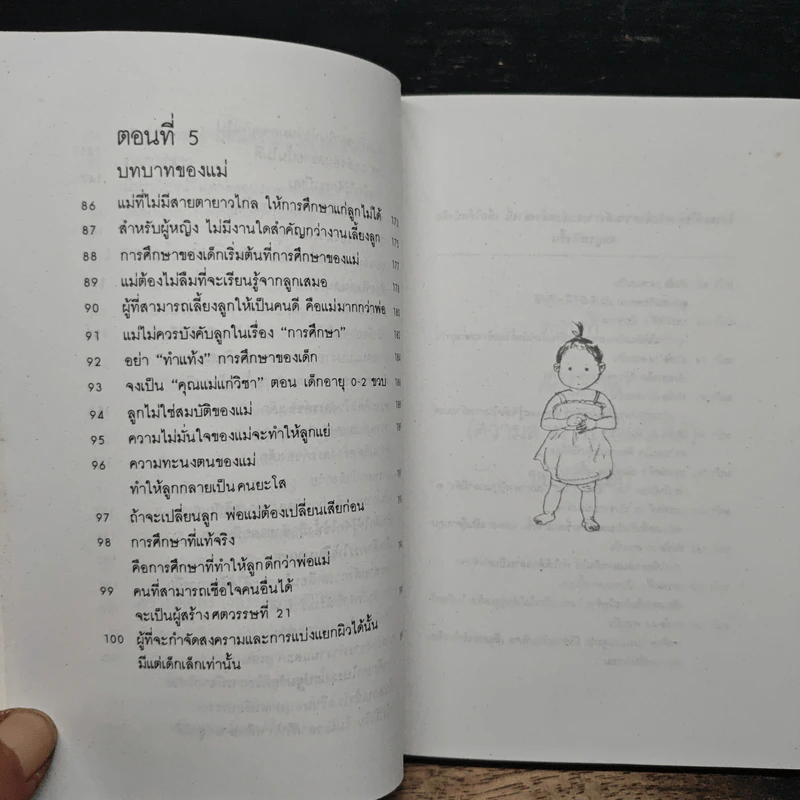 ตอนที่ 5
บทบาทของแม่
86 แม่ที่ไม่มีสายตายาวไกล ให้การศึกษาแก่ลูกไม่ได้ 173
87 สำหรับผู้หญิง ไม่มีงานใดสำคัญกว่างานเลี้ยงลูก 175
88 การศึกษาของเด็กเริ่มต้นที่การศึกษาของแม่ 177
89 แม่ต้องไม่ลืมที่จะเรียนรู้จากลูกเสมอ 178
90 ผู้ที่สามารถเลี้ยงลูกให้เป็นคนดี คือแม่มากกว่าพ่อ 180
91 แม่ไม่ควรบังคับลูกในเรื่อง “การศึกษา” 182
92 อย่า “ทำแท้ง” การศึกษาของเด็ก 184
93 จงเป็น “คุณแม่แก่วิชา” ตอน เด็กอายุ 0-2 ขวบ
94 ลูกไม่ใช่สมบัติของแม่
95 ความไม่มั่นใจของแม่จะทำให้ลูกแย่
96 ความทะนงตนของแม่
ทำให้ลูกกลายเป็นคนยะโส
97 ถ้าจะเปลี่ยนลูก พ่อแม่ต้องเปลี่ยนเสียก่อน
98 การศึกษาที่แท้จริง
คือการศึกษาที่ทำให้ลูกดีกว่าพ่อแม่
99 คนที่สามารถเชื่อใจคนอื่นได้
จะเป็นผู้สร้างศตวรรษที่ 21
100 ผู้ที่จะกำจัดสงครามและการแบ่งแยกผิวได้นั้น
มีแต่เด็กเล็กเท่านั้น